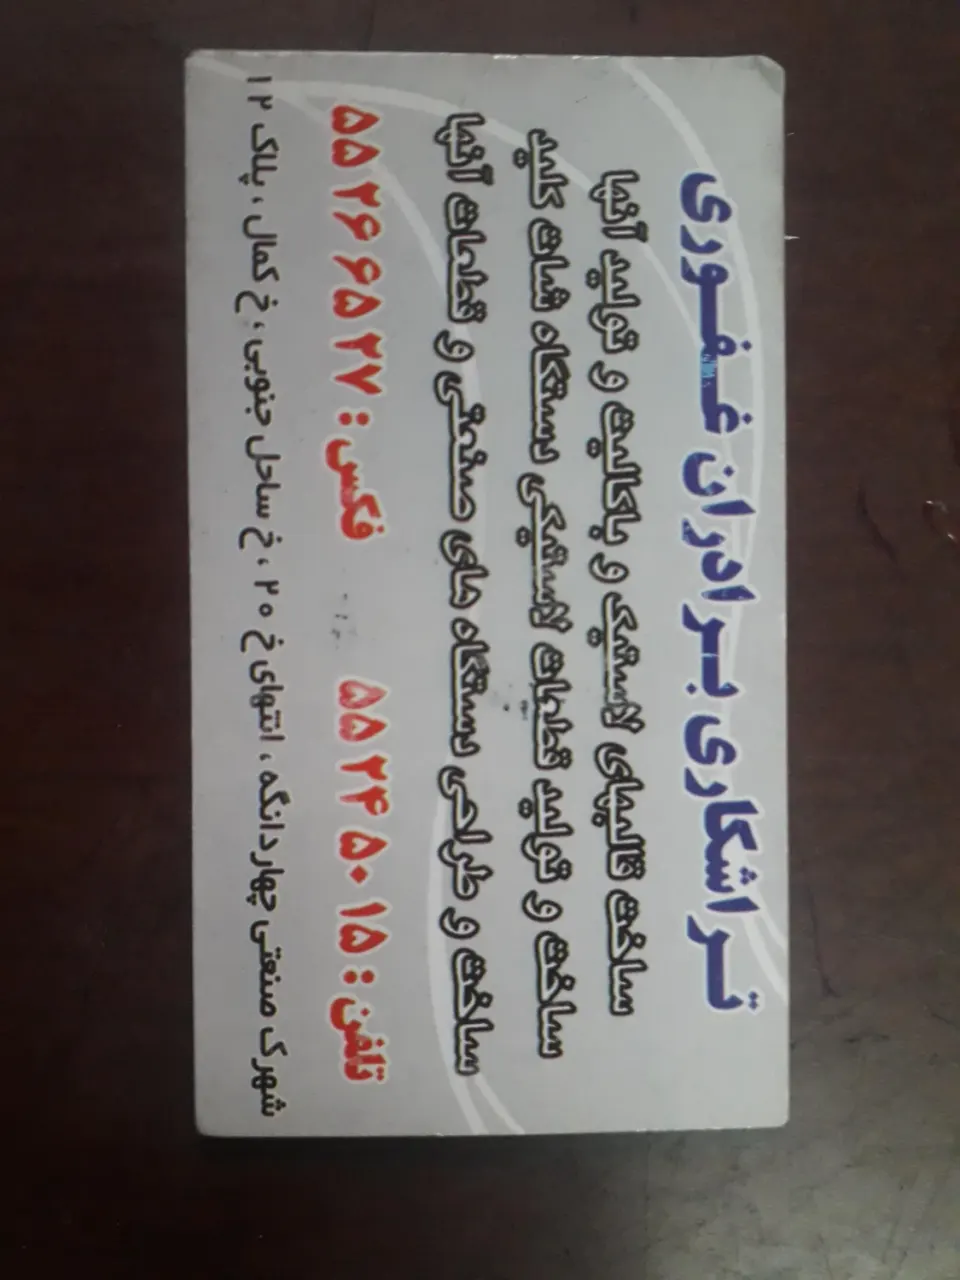 تراشکاری برادران غفوری
ساخت قالبهای لاستیک و باکالیت و تولید آنها
ساخت و تولید قطعات لاستیکی دستگاه شات کلید
ساخت و طراحی دستگاه های صنعتی و قطعات آنها
تلفن: ۵۵۲۴۵۰۱۵ فکس: ۵۵۲۶۶۵۲۷
شهرک صنعتی چهاردانگه، انتهای خ ۲۰، خ ساحل جنوبی، خ کمال، پلاک ۱۲